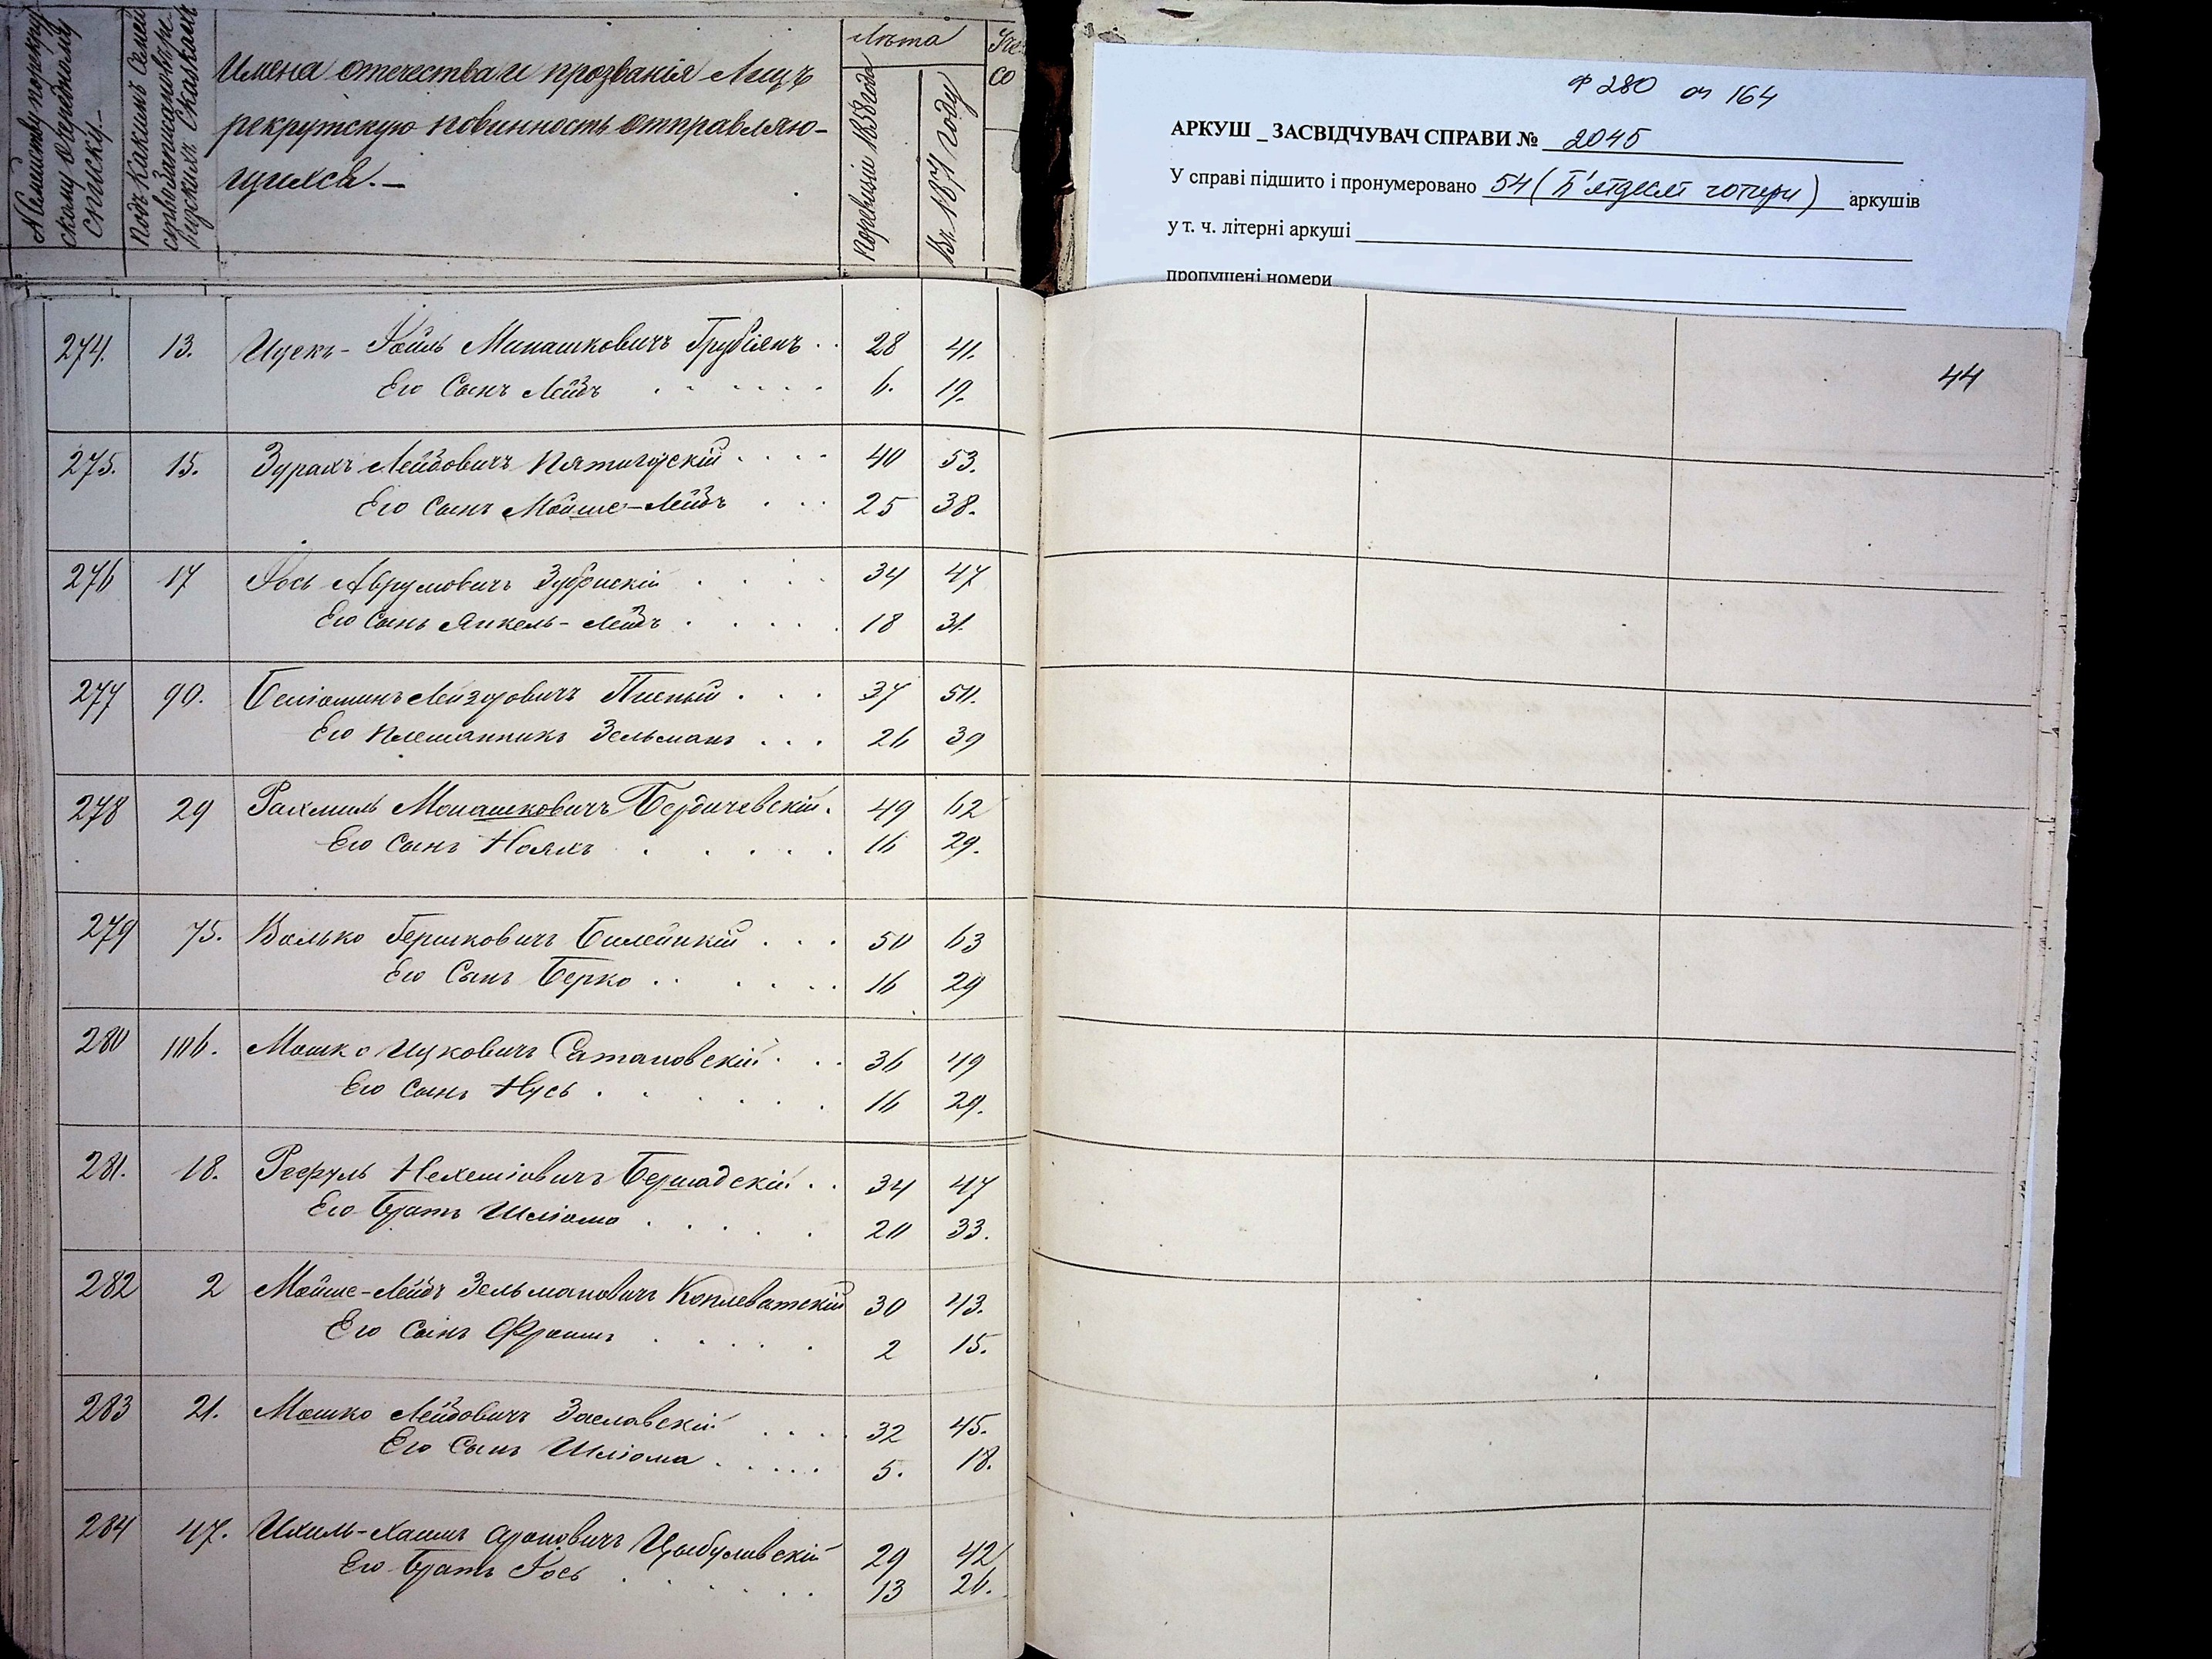 № Семействъ по рекрут
скому очередному
списку.
Подъ какимъ № семей
ство записано въ ре
визскихъ сказкахъ
Имена отечества и прозванія лицъ
рекрутскую повинность отправляю-
щихся.
Лѣта
По ревизіи 1858 года
Въ 1871 году
со
ф 280 оп 164
АРКУШ _ ЗАСВІДЧУВАЧ СПРАВИ № 2045
У справі підшито і пронумеровано 54 (П'ятдесят чотири) аркушів
у т. ч. літерні аркуші
пропущені номери
44
274. 13. Ицекъ-Іойль Минашковичъ Грубіянъ 28 41.
Его Сынъ Лейбъ 6. 19.
275. 15. Зурахъ Лейбовичъ Пятигорскій 40 53.
Его Сынъ Мойше-Лейбъ 25 38.
276 17 Іось Аврумовичъ 34 47
Его Сынъ Янкель-Лейбъ 18 31.
277 90. Беніоминъ Лейзоровичъ 37 50.
Его Племянникъ Зельманъ 26 39
278 29 Рахмиль Монашковичъ Бердичевскій 49 62
Его Сынъ Нояхъ 16 29.
279 75. Волько Гершковичъ Билецкій 50 63
Его Сынъ Берко 16 29
280 106. Мошко Ицковичъ Сатановскій 36 49
Его Сынъ Нусь 16 29.
281. 18. Рефуль Нехеміовичъ Бершадскій 34 47
Его Братъ Шліома 20 33.
282 2 Мойше-Лейбъ Зельмановичъ Коплеватскій 30 43.
Его Сынъ Фроимъ 2 15.
283 21. Мошко Лейбовичъ Заславскій 32 45.
Его Сынъ Шліома 5. 18.
284 47. Ихиль-Хаимъ Ароновичъ Цыбулевскій 29 42
Его Братъ Іось 13 26.